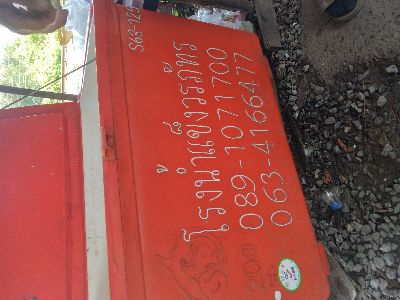 S63-129
โรงน้ำแข็งวรภัทร
089-1071700
063-4166477
200